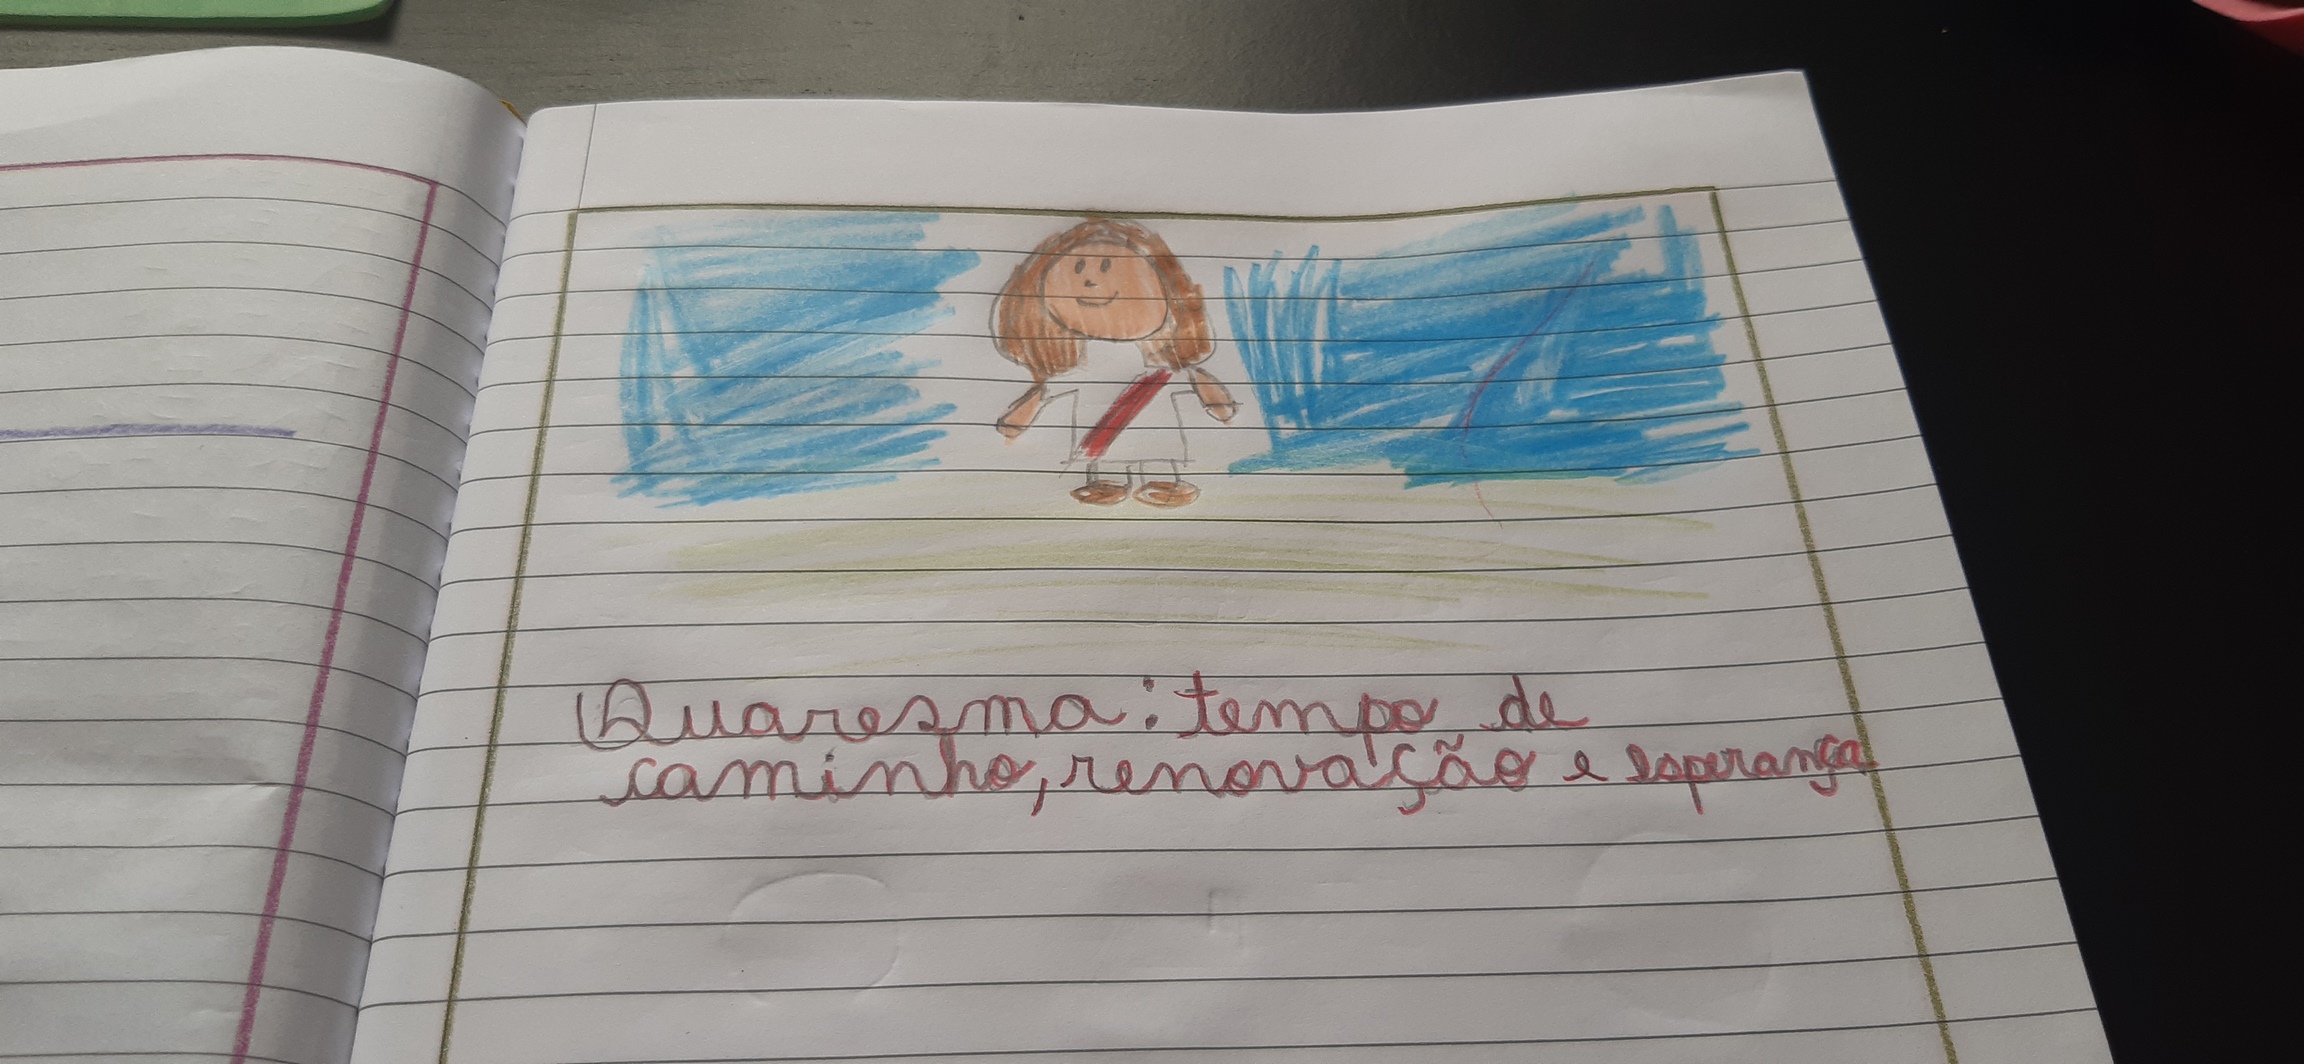 Quaresma: tempo de
caminho, renovação e esperança